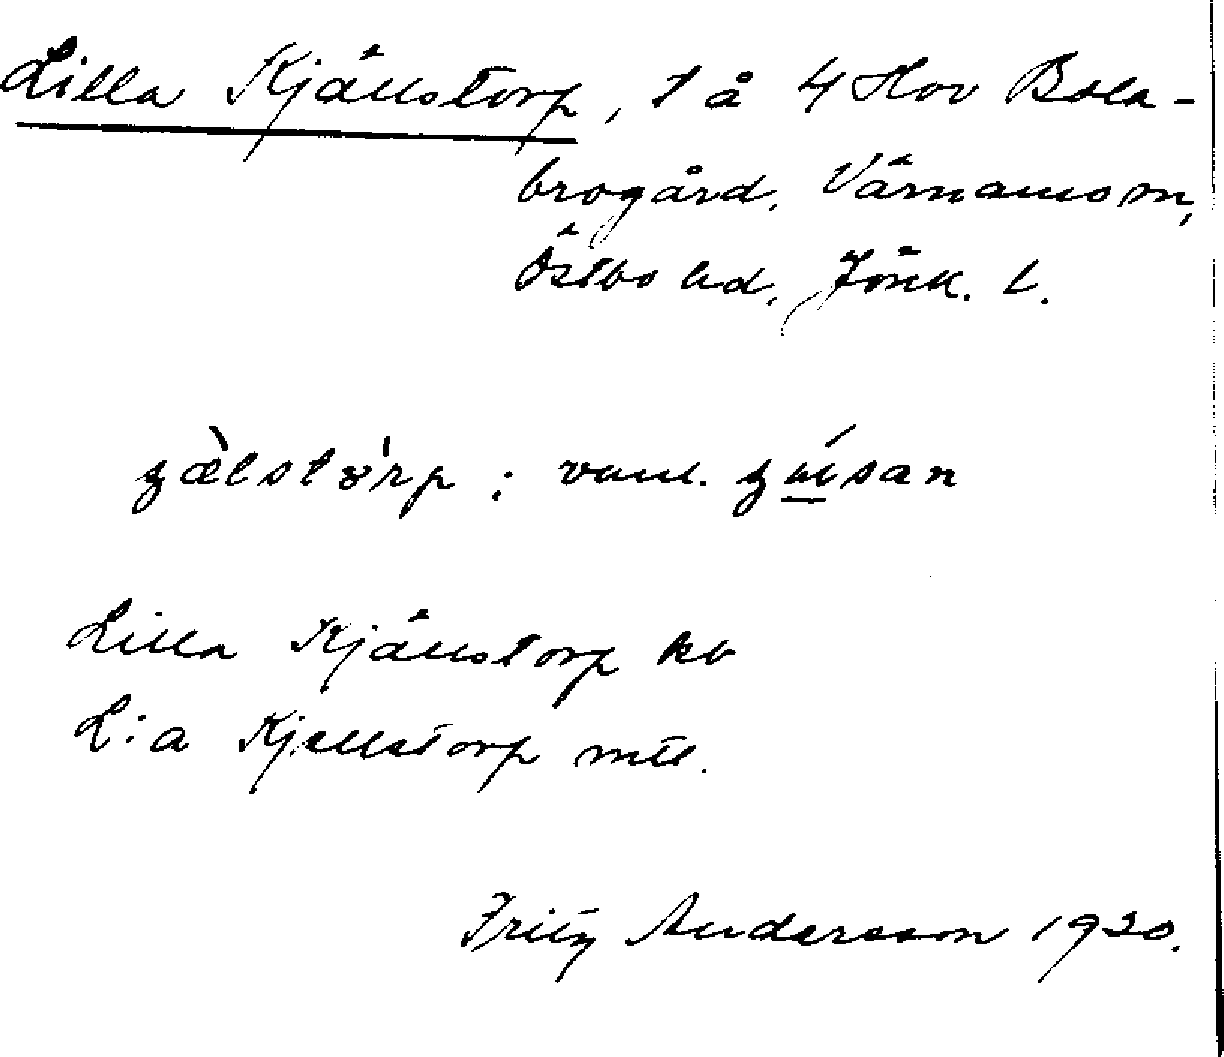 Lilla Kjällstorp, 1 å 4 Hov Bola-
brogård, Värnamo sn,
Östbo hd, Jönk. l.
: vanl.
Lilla Kjällstorp kb
L:a Kjellstorp mtl.
Fritz Andersson 1920.